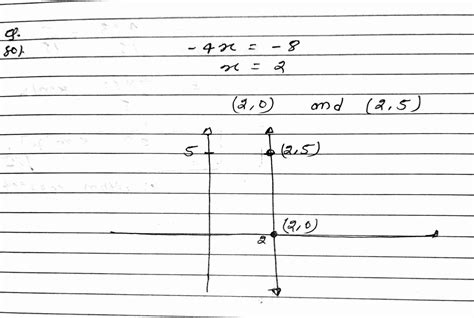 Q.
Sol.
-4x = -8
x = 2
(2,0) and (2,5)
5 (2,5)
(2,0)
2